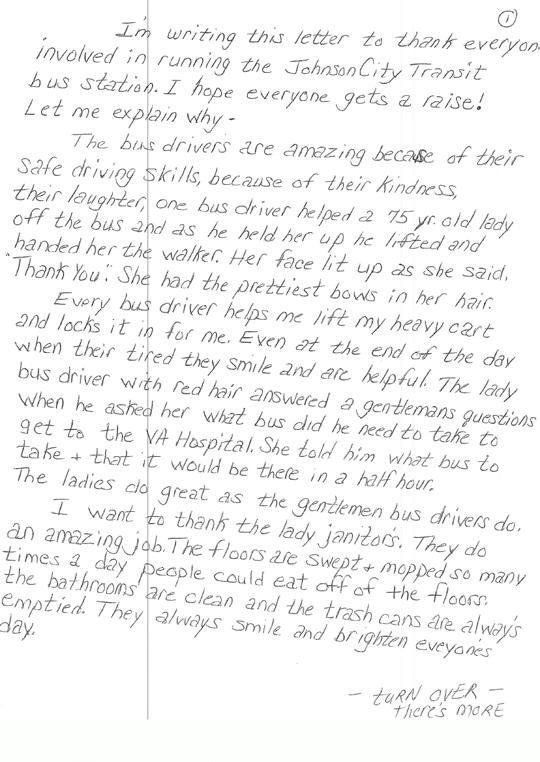 ①
I'm writing this letter to thank everyon
involved in running the Johnson City Transit
bus station. I hope everyone gets a raise!
Let me explain why -
The bus drivers are amazing becase of their
safe driving skills, because of their kindness,
their laughter, one bus driver helped a 75 yr. old lady
off the bus and as he held her up he lifted and
handed her the walker. Her face lit up as she said,
"Thank You". She had the prettiest bows in her hair.
Every bus driver helps me lift my heavy cart
and locks it in for me. Even at the end of the day
when their tired they smile and are helpful. The lady
bus driver with red hair answered a gentlemans questions
when he asked her what bus did he need to take to
get to the VA Hospital. She told him what bus to
take + that it would be there in a half hour.
The ladies do great as the gentlemen bus drivers do.
I want to thank the lady janitors. They do
an amazing job. The floors are swept + mopped so many
times a day people could eat off of the floors.
the bathrooms are clean and the trash cans are always
emptied. They always smile and brighten eveyone's
day.
- turn over -
there's more